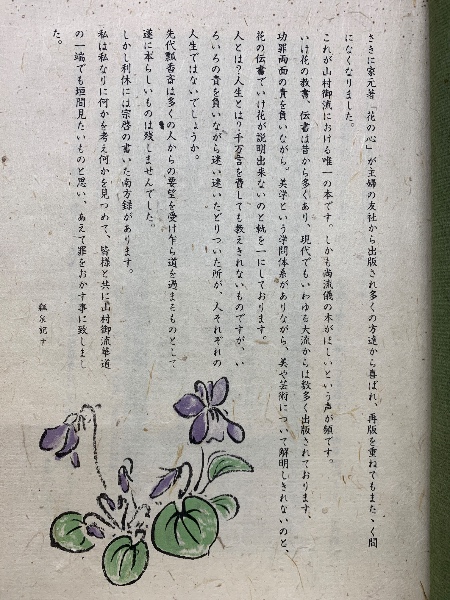 さきに家元著「花の心」が主婦の友社から出版され多くの方達から喜ばれ、再版を重ねてもまたゝく間
になくなりました。
これが山村御流における唯一の本です。しかも尚流儀の本がほしいという声が頻です。
いけ花の教書、伝書は昔から多くあり、現代でもいわゆる大流からは数多く出版されております。
功罪両面の責を負いながら。美学という学問体系がありながら、美や芸術について解明しきれないのと、
花の伝書でいけ花が説明出来ないのと軌を一にしております。
人とは？人生とは？千万言を費しても教えきれないものですが、い
ろいろの責を負いながら迷い迷いたどりついた所が、人それぞれの
人生ではないでしょうか。
先代瓢香斎は多くの人からの要望を受け乍ら道を過まるものとして
遂に本らしいものは残しませんでした。
しかし利休には宗啓の書いた南方録があります。
私は私なりに何かを考え何かを見つめて、皆様と共に山村御流華道
の一端でも垣間見たいものと思い、あえて罪をおかす事に致しまし
た。
記す